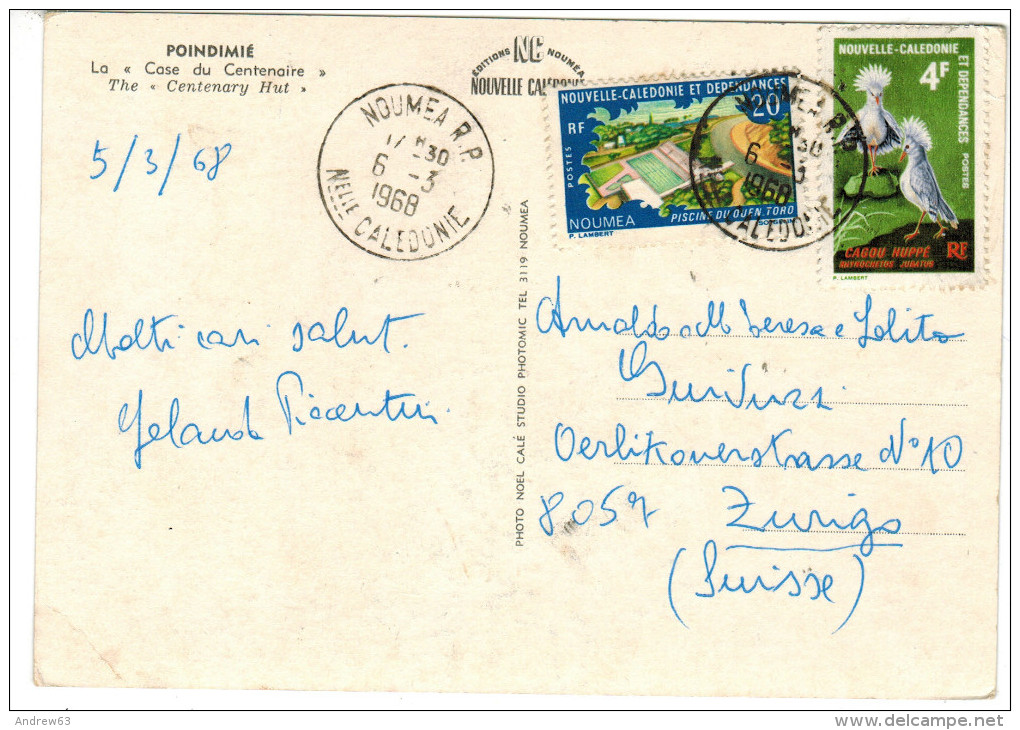 POINDIMIÉ
La « Case du Centenaire »
The « Centenary Hut »
5/3/68
ÉDITIONS NC NOUMÉA
NOUVELLE CALEDONIE
NOUMEA R.P
17 H30
6 -3
1968
NELLE CALEDONIE
NOUVELLE-CALEDONIE ET DEPENDANCES
20F
RF
POSTES
NOUMEA
PISCINE DU OUEN.TORO
P. LAMBERT
NOUMEA R.P
6
30
3
1968
CALEDONIE
NOUVELLE-CALEDONIE
ET DEPENDANCES POSTES
4F
CAGOU HUPPÉ
RHYNOCHETOS JUBATUS
RF
P. LAMBERT
PHOTO NOEL CALÉ STUDIO PHOTOMIC TEL 3119 NOUMEA
Molti cari salut.
Arnaldo M Teresa e Lolita
Oerlikonerstrasse N° 10
8057 Zurigo
(Suisse)
Andrew63
www.delcampe.net